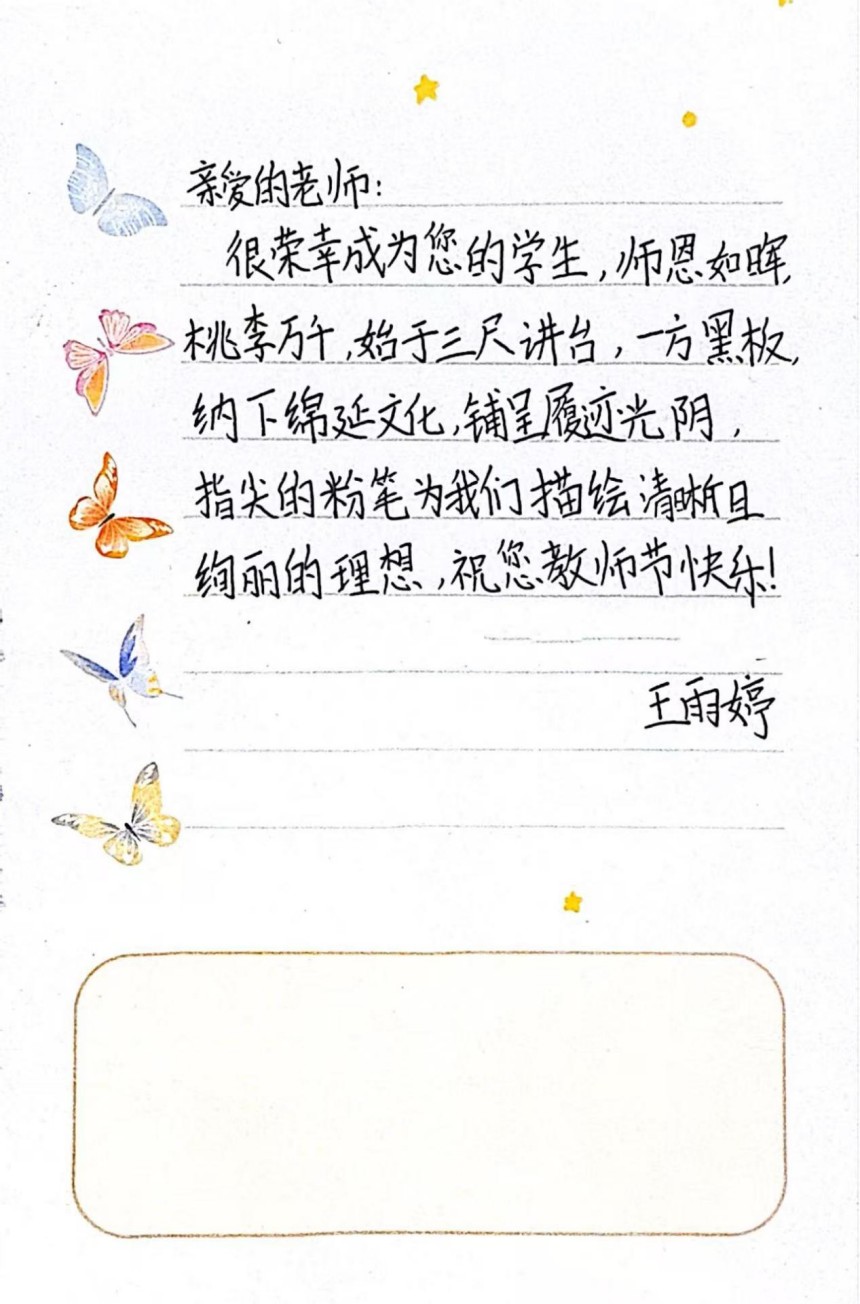 亲爱的老师：
很荣幸成为您的学生，师恩如晖，
桃李万千，始于三尺讲台，一方黑板，
纳下绵延文化，铺呈履迹光阴，
指尖的粉笔为我们描绘清晰且
绚丽的理想，祝您教师节快乐！
王雨婷